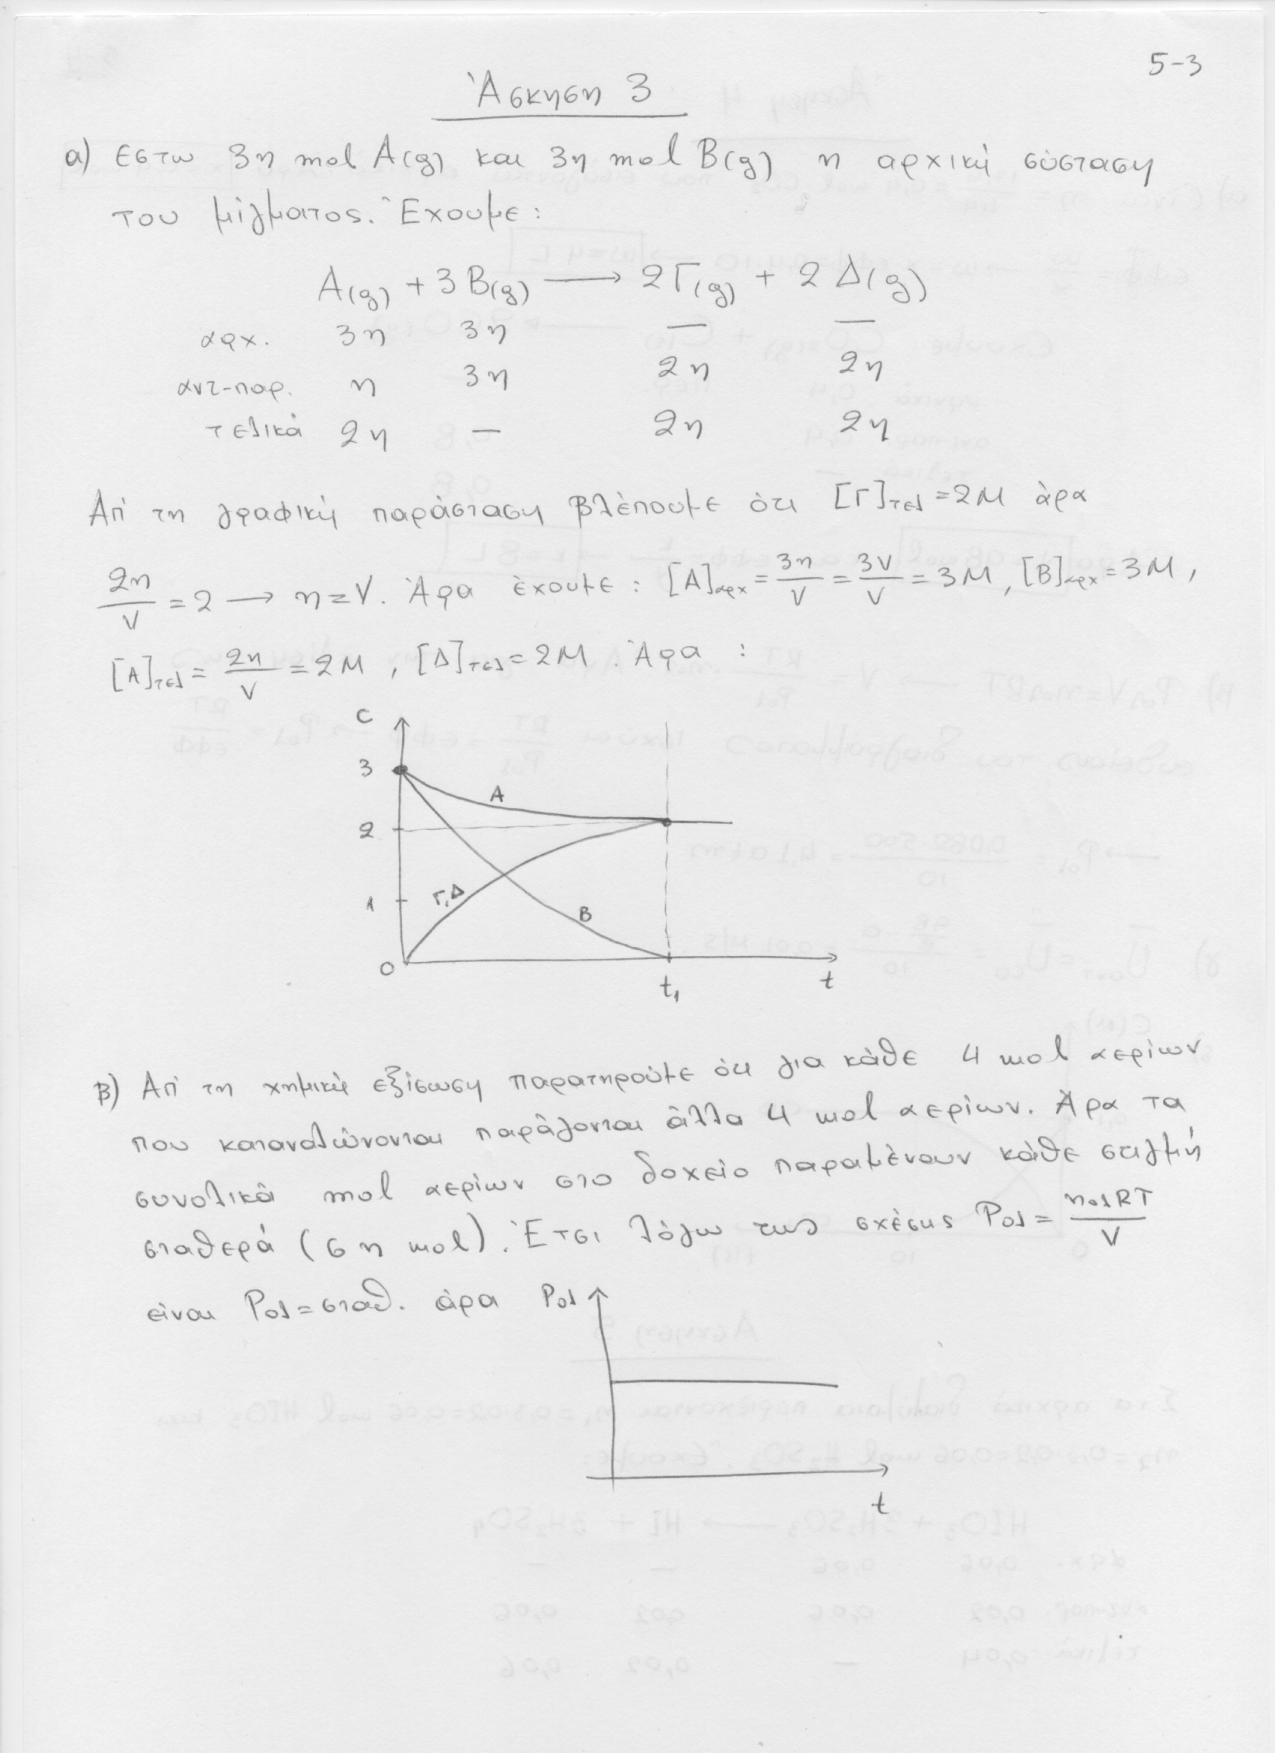 5-3
Άσκηση 3
α) Έστω 3η mol A(g) και 3η mol B(g) η αρχική σύσταση
του μίγματος. Έχουμε:
A(g) + 3B(g) ⟶ 2Γ(g) + 2Δ(g)
αρχ. 3η 3η — —
αντ-παρ. η 3η 2η 2η
τελικά 2η — 2η 2η
Απ' τη γραφική παράσταση βλέπουμε ότι [Γ]τελ = 2Μ άρα
2η/V = 2 ⟶ η = V. Άρα έχουμε: [A]αρχ = 3η/V = 3V/V = 3M, [B]αρχ = 3M,
[A]τελ = 2η/V = 2M, [Δ]τελ = 2M. Άρα:
C
3
A
2
Γ,Δ
1
B
0
t₁ t
β) Απ' τη χημική εξίσωση παρατηρούμε ότι για κάθε 4 mol αερίων
που καταναλώνονται παράγονται άλλα 4 mol αερίων. Άρα τα
συνολικά mol αερίων στο δοχείο παραμένουν κάθε στιγμή
σταθερά (6η mol). Έτσι λόγω της σχέσης Pολ = nολRT/V
είναι Pολ = σταθ. άρα Pολ
t